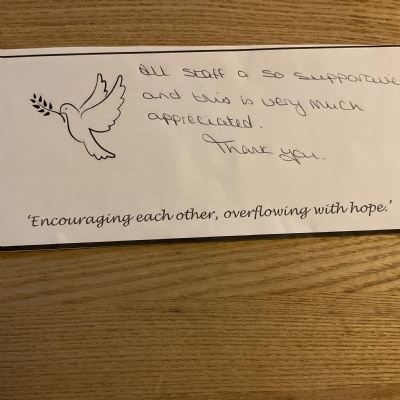 All staff a so supportive
and this is very much
appreciated.
Thank you.
'Encouraging each other, overflowing with hope.'